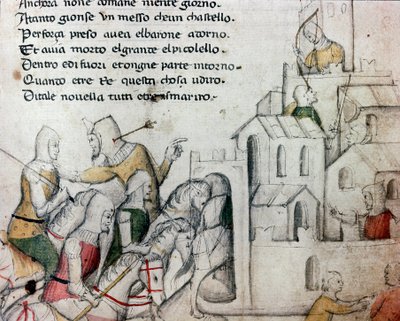 Anchora none comane niente giorno.
Atanto gionse vn messo deun chastello.
Perforça preso auea elbarone atorno.
Et auia morto elgrante elpicolello.
Dentro edifuori etongne parte intorno.
Quanto etre Re questa chosa udiro.
Ditale nouella tutti etre smariro.